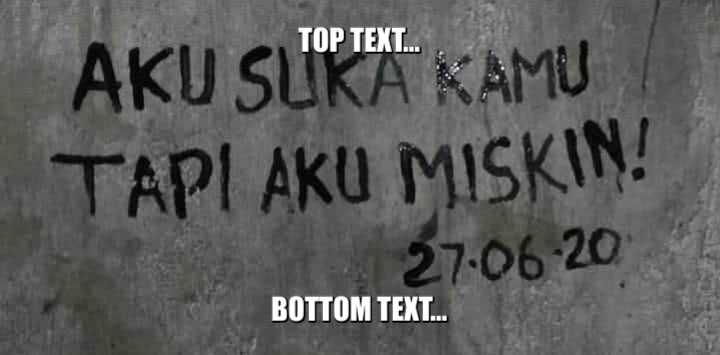 TOP TEXT...
AKU SUKA KAMU
TAPI AKU MISKIN!
27.06.20
BOTTOM TEXT...